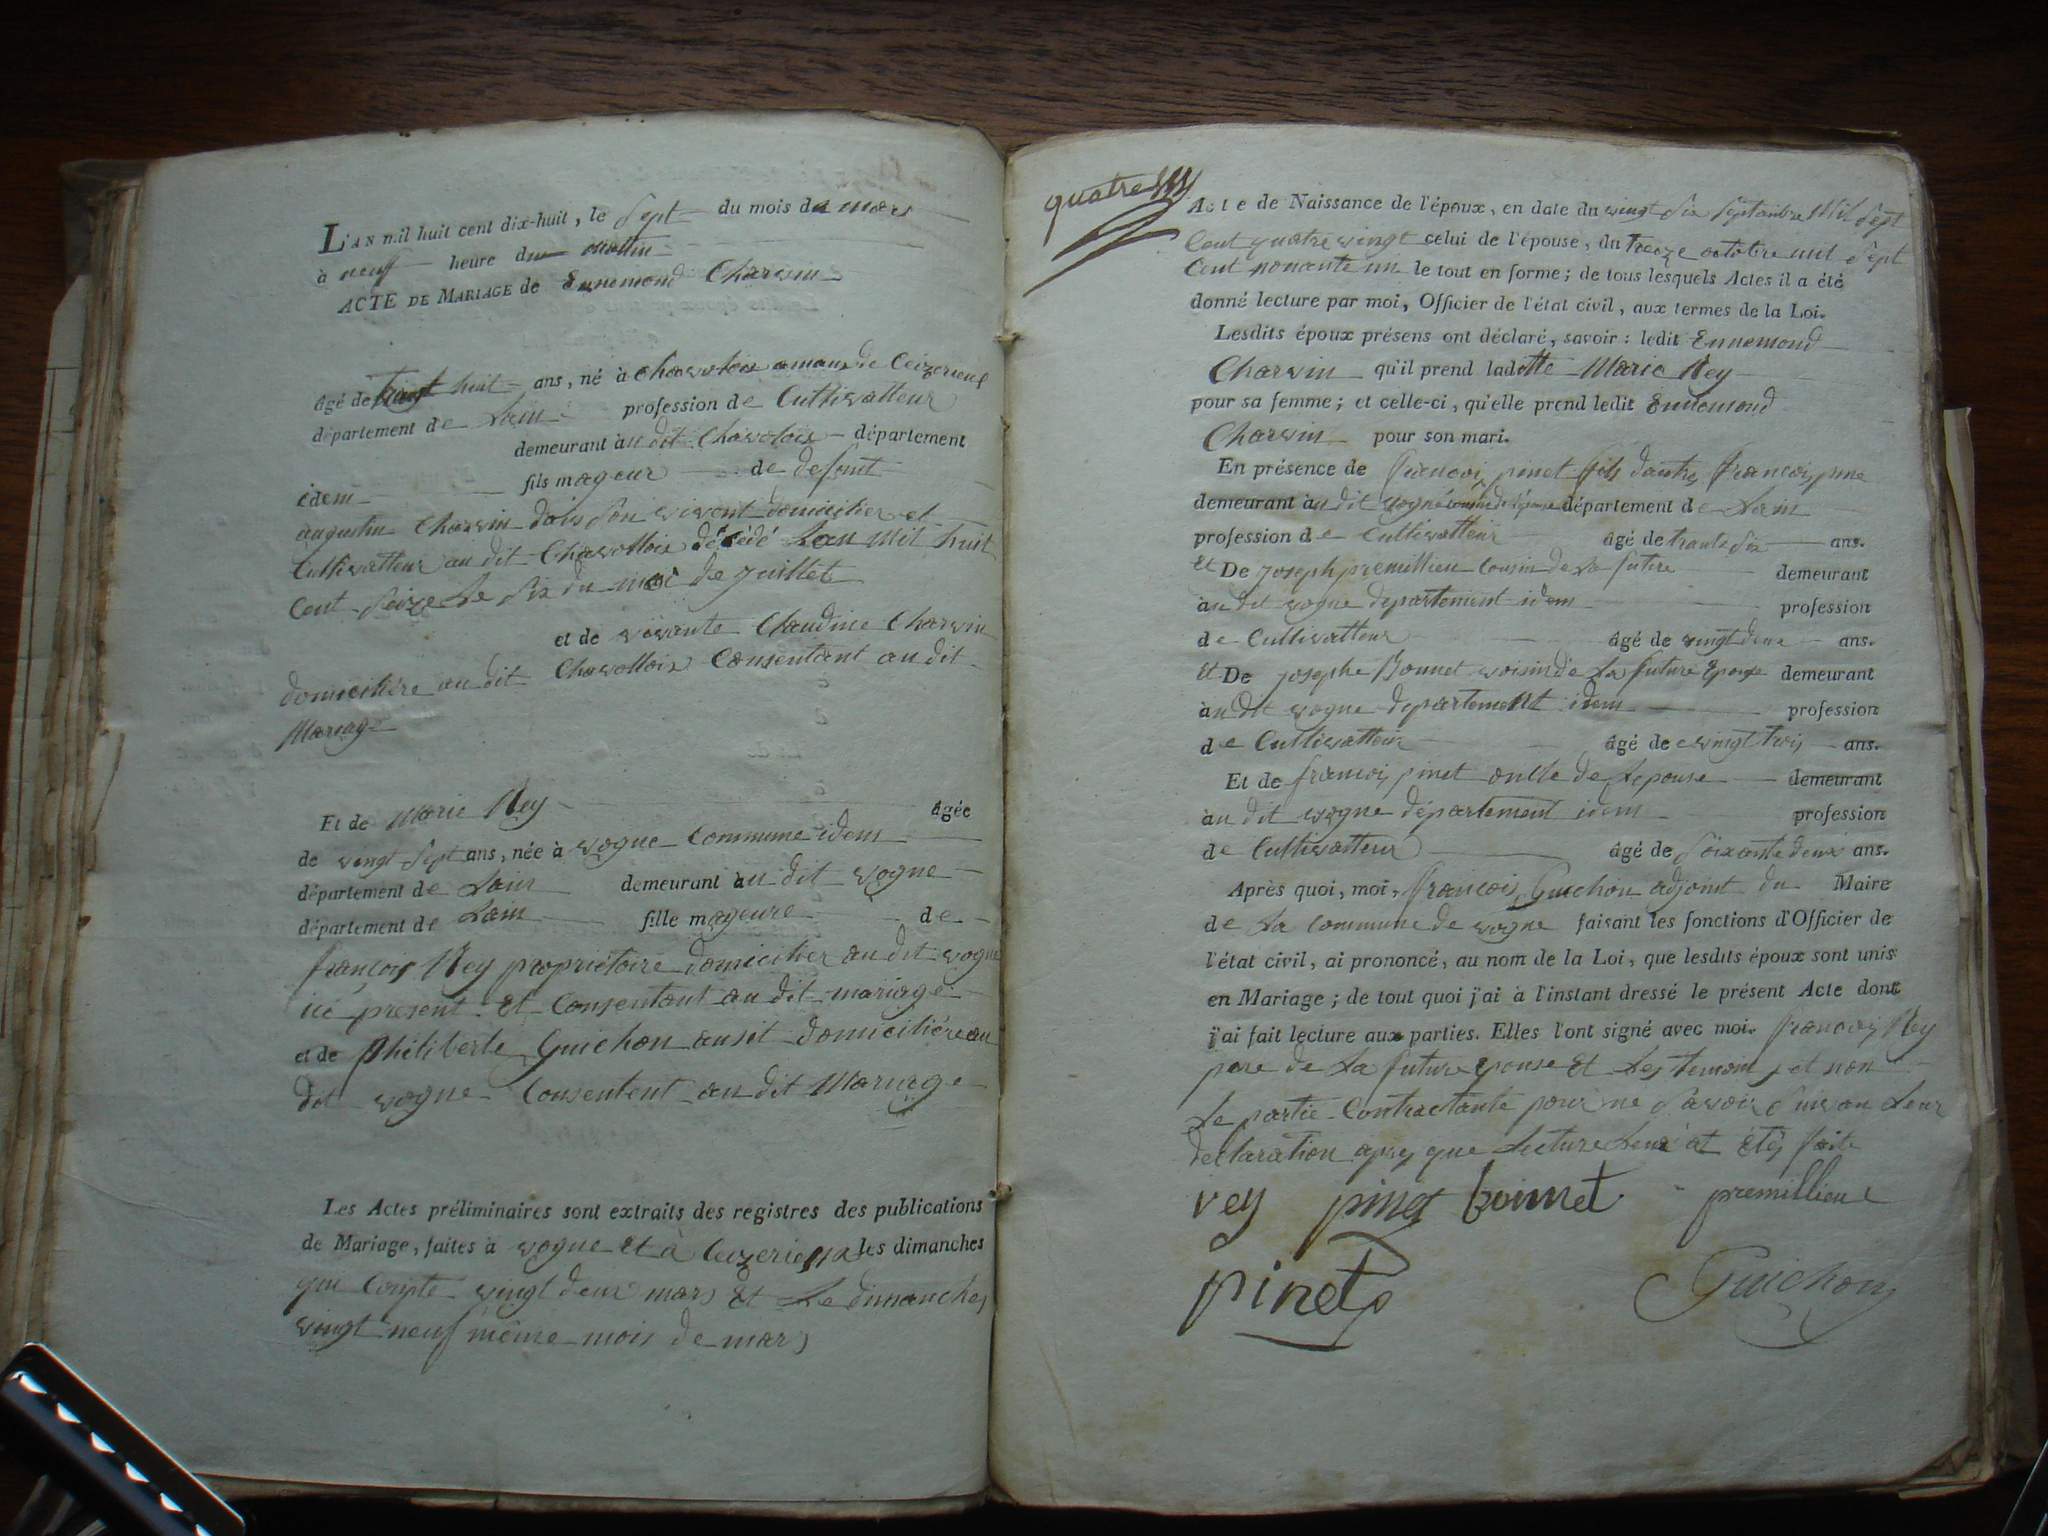 L'AN mil huit cent dix-huit, le Sept du mois de mars
à neuff heure du matin
ACTE DE MARIAGE de Ennemond Charvin
âgé de huit ans, né à de Ceizerieux
département de Lain profession de Cultivatteur
demeurant àu dit Chavolois département
idem fils mageur de defont
augustin Charvin dans son vivant domicilier et
Cultivatteur au dit Chavollois décédé Lan mil huit
Cent Seize Le Six du moi de juillet
et de vivante Claudine Charvin
domiciliére au dit Chavollois Consentant au dit
Mariage
Et de Marie Rey âgée
de vingt Sept ans, née à vogne Commune idem
département de Lain demeurant àu dit vogne
département de Lain fille mageure de
françois Rey propriétoire domicilier au dit vogne
ici present Et Consentant au dit mariage
et de Philiberte Guichon ausit domiciliére au
dit vogne Consentent au dit Mariage
Les Actes préliminaires sont extraits des registres des publications
de Mariage, faites à vogne Et à Ceizerieux les dimanches
que Conpte vingt deux mars Et Le dimanches
vingt neuf même mois de mars
quatre
Acte de Naissance de l'époux, en date du vingt Six Septambre Mil Sept
Cent quatre vingt celui de l'épouse, du Treize octobre mil Sept
Cent nonante un le tout en forme; de tous lesquels Actes il a été
donné lecture par moi, Officier de l'état civil, aux termes de la Loi.
Lesdits époux présens ont déclaré, savoir: ledit Ennemond
Charvin qu'il prend ladette Marie Rey
pour sa femme; et celle-ci, qu'elle prend ledit Ennemond
Charvin pour son mari.
En présence de francois pinet fils dautre francois pine
demeurant àu dit vogne cousin de lepouse département de Lain
profession de Cultivatteur âgé de trante Six ans.
Et De joseph premillieu Cousin de La future demeurant
àu dit vogne departement idem profession
de Cultivatteur âgé de vingt deux ans.
Et De josephe Bonnet voisin de La future Epouse demeurant
àu dit vogne departement idem profession
de Cultivatteur âgé de vingt trois ans.
Et de francois pinet oncle de Lepouse demeurant
àu dit vogne département idem profession
de Cultivatteur âgé de Soixante deux ans.
Après quoi, moi, françois Guichon adjoint du Maire
de La Commune de vogne faisant les fonctions d'Officier de
l'état civil, ai prononcé, au nom de la Loi, que lesdits époux sont unis
en Mariage; de tout quoi j'ai à l'instant dressé le présent Acte dont
j'ai fait lecture aux parties. Elles l'ont signé avec moi. francois Rey
pere de La future epouse Et Les temoins et non
Le partie Contractante pour ne Savoir Suivan Leur
declaration apres que Lecture Leur at étés faite
rey pinet bonnet premillieu
pinet Guichon